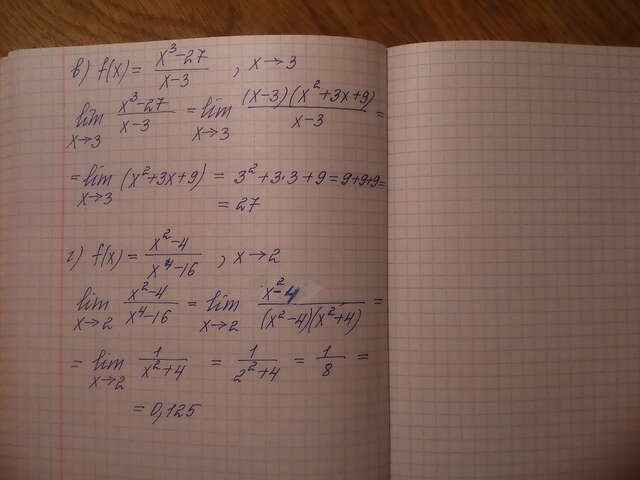 в) f(x) = (x³-27)/(x-3) , x→3
lim x→3 (x³-27)/(x-3) = lim x→3 ((x-3)(x²+3x+9))/(x-3) =
= lim x→3 (x²+3x+9) = 3²+3·3+9 = 9+9+9 =
= 27
г) f(x) = (x²-4)/(x⁴-16) , x→2
lim x→2 (x²-4)/(x⁴-16) = lim x→2 (x²-4)/((x²-4)(x²+4)) =
= lim x→2 1/(x²+4) = 1/(2²+4) = 1/8 =
= 0,125